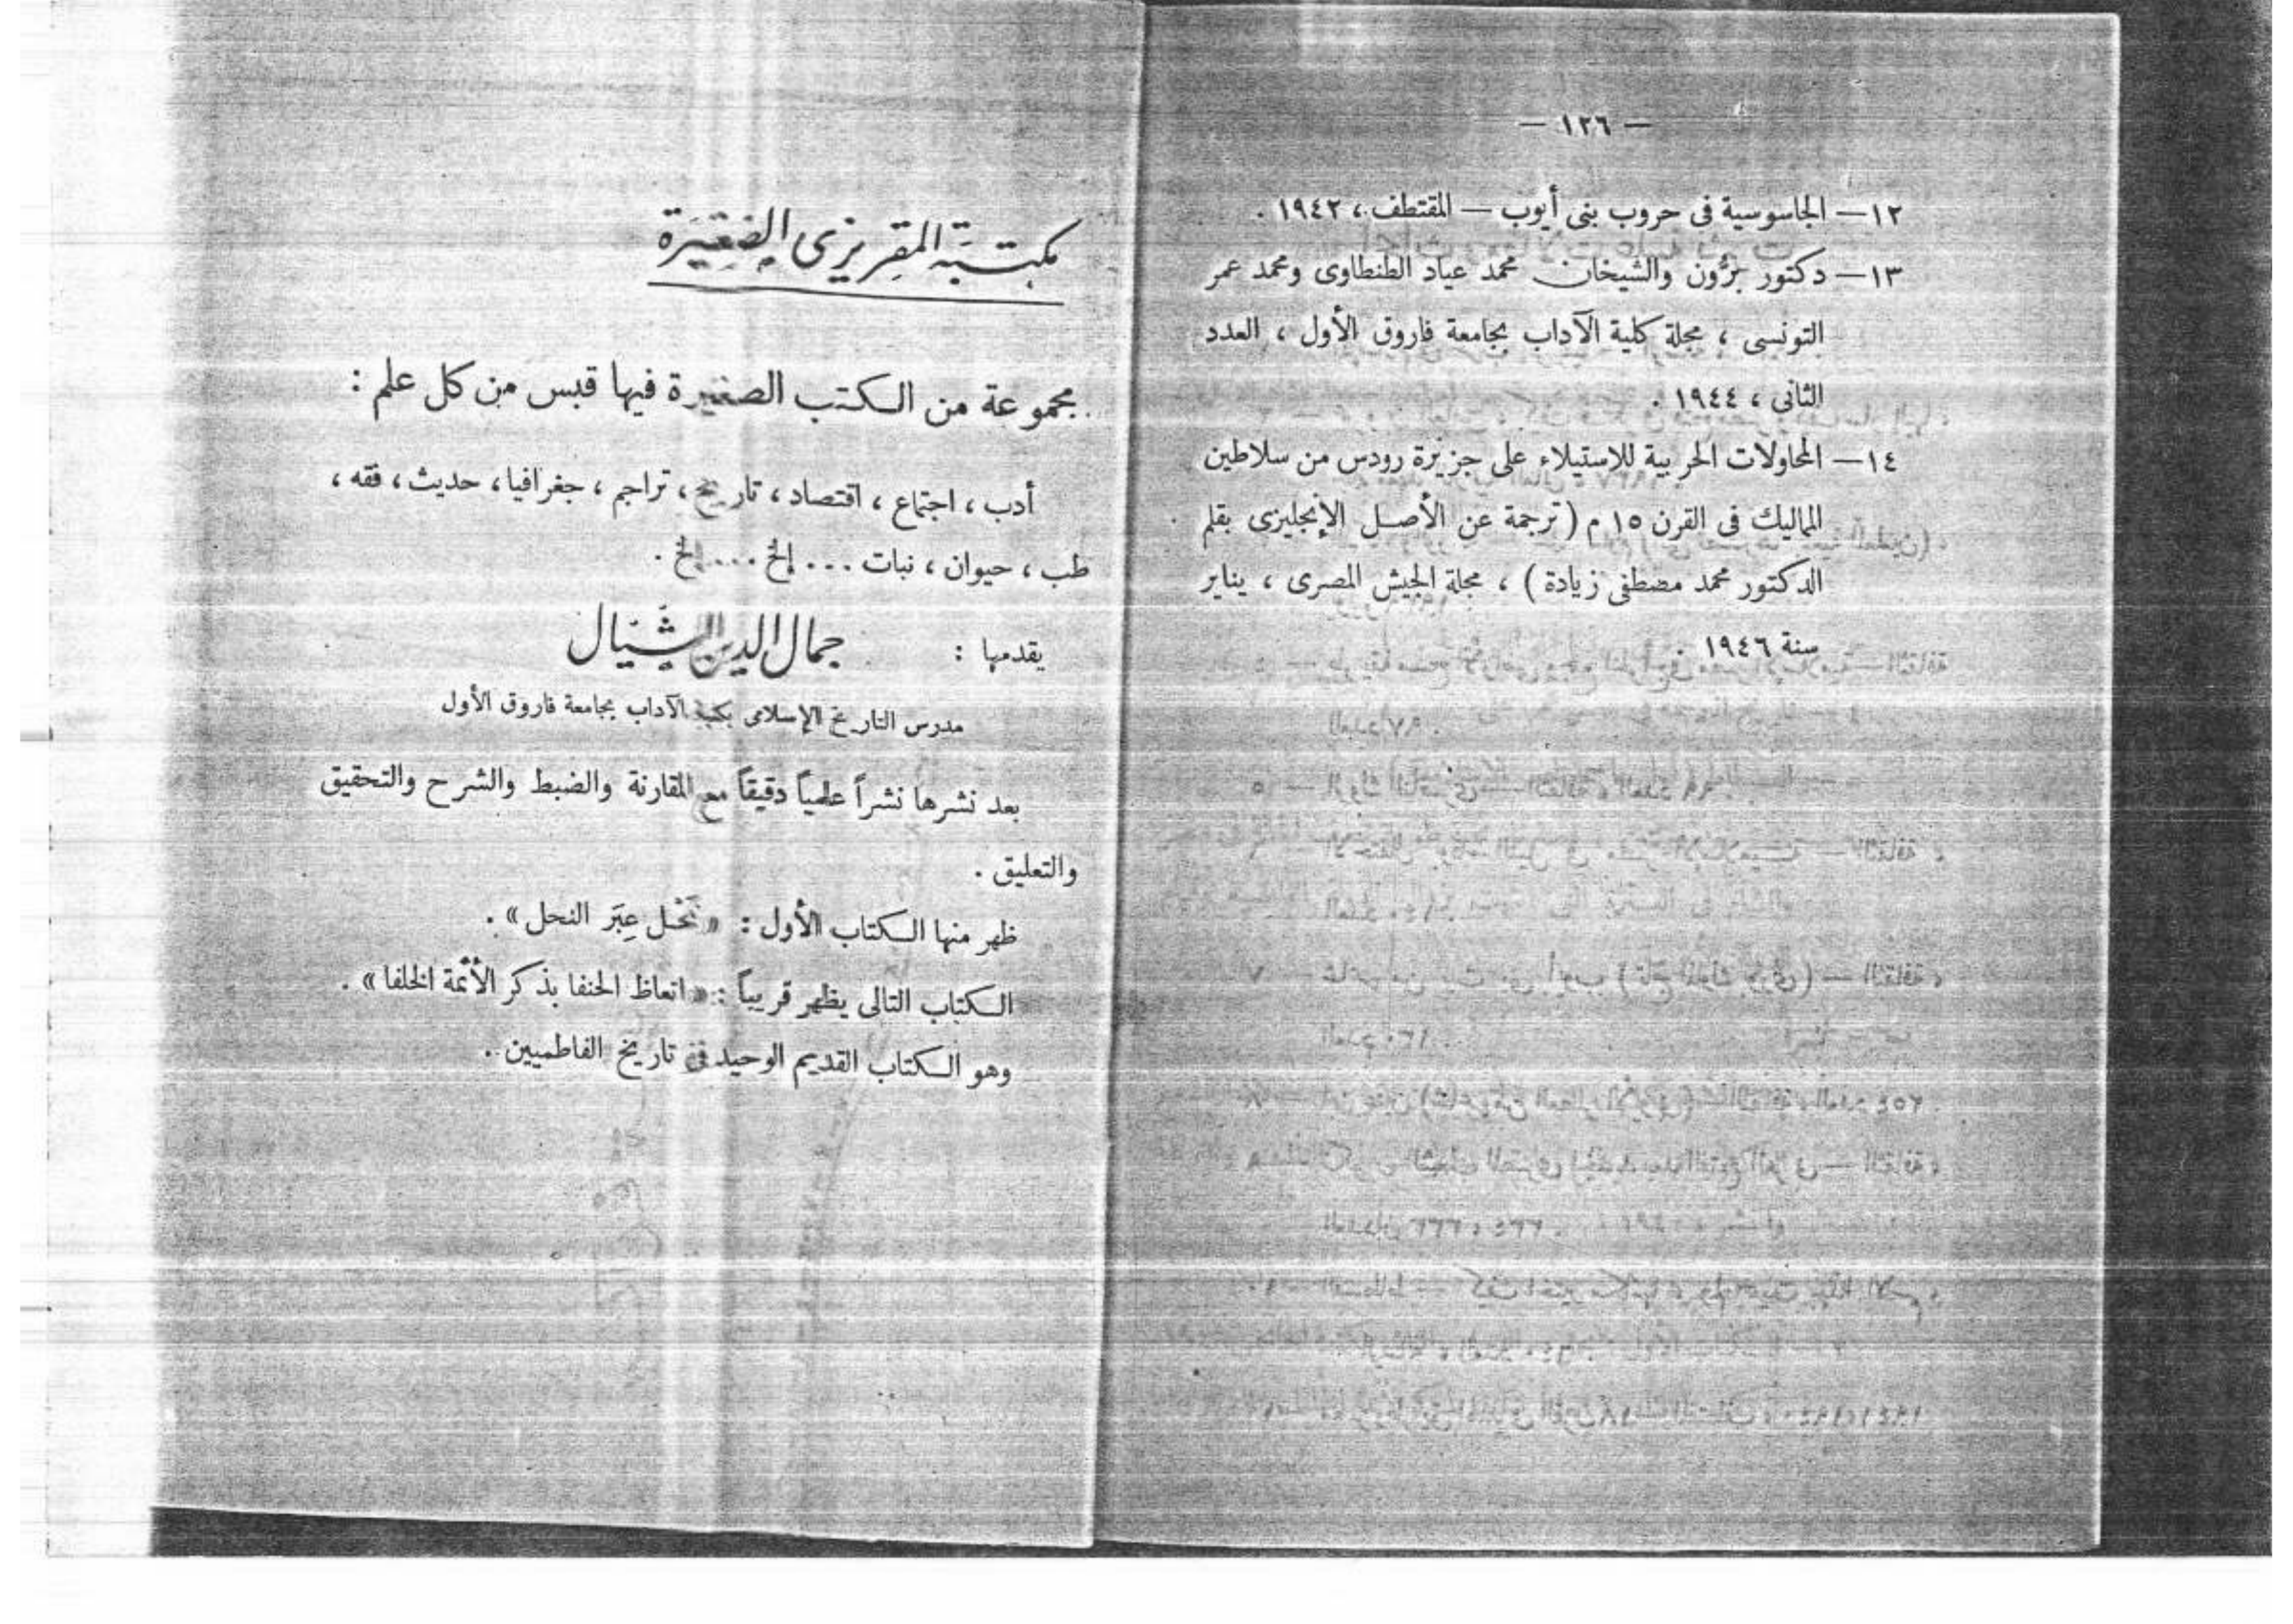 — ١٢٦ —
١٢— الجاسوسية فى حروب بنى أيوب — المقتطف ، ١٩٤٢ .
١٣— دكتور برُّون والشيخان محمد عياد الطنطاوى ومحمد عمر
التونسى ، مجلة كلية الآداب بجامعة فاروق الأول ، العدد
الثانى ، ١٩٤٤ .
١٤— المحاولات الحربية للاستيلاء على جزيرة رودس من سلاطين
المماليك فى القرن ١٥ م ( ترجمة عن الأصل الإنجليزى بقلم
الدكتور محمد مصطفى زيادة ) ، مجلة الجيش المصرى ، يناير
سنة ١٩٤٦ .
مكتبة المقريزى الصغيرة
مجموعة من الكتب الصغيرة فيها قبس من كل علم :
أدب ، اجتماع ، اقتصاد ، تاريخ ، تراجم ، جغرافيا ، حديث ، فقه ،
طب ، حيوان ، نبات ... إلخ ... إلخ .
يقدمها : جمال الدين الشيّال
مدرس التاريخ الإسلامى بكلية الآداب بجامعة فاروق الأول
بعد نشرها نشراً علمياً دقيقاً مع المقارنة والضبط والشرح والتحقيق
والتعليق .
ظهر منها الكتاب الأول : « نَحْل عِبَر النحل » .
الكتاب التالى يظهر قريباً : « اتعاظ الحنفا بذكر الأئمة الخلفا » .
وهو الكتاب القديم الوحيد فى تاريخ الفاطميين .